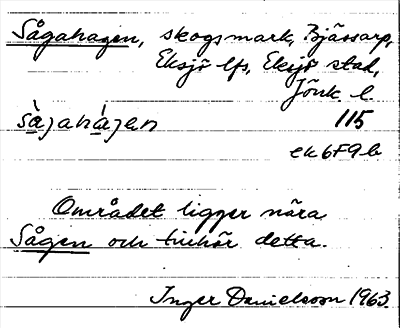 Sågahagen, skogsmark, Bjässarp,
Eksjö lfs, Eksjö stad,
Jönk. l.
sà̱gahà̱gen 115
ek 6F9b
Området ligger nära
Sågen och tillhör detta.
Inger Danielsson 1963.